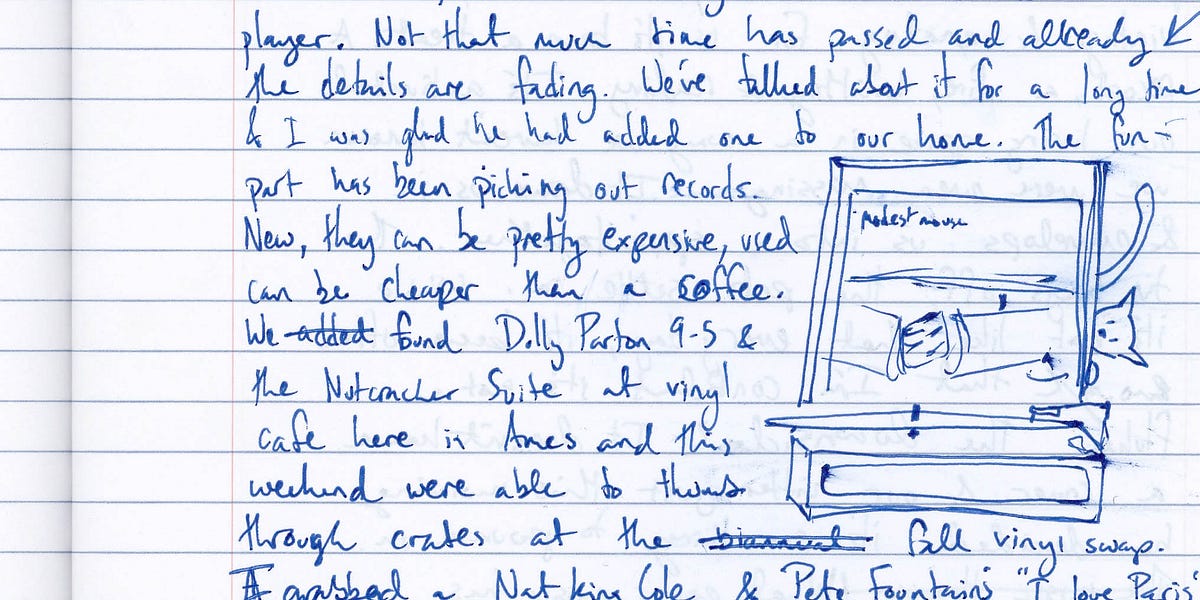 player. Not that much time has passed and allready
the details are fading. We've talked about it for a long time
& I was glad he had added one to our home. The fun
part has been picking out records.
modest mouse
New, they can be pretty expensive, used
can be cheaper than a coffee.
We added found Dolly Parton 9-5 &
the Nutcracker Suite at vinyl
cafe here in Ames and this
weekend were able to thumb
through crates at the biannual fall vinyl swap.
I grabbed a Nat King Cole & Pete Fountain's "I love Paris"